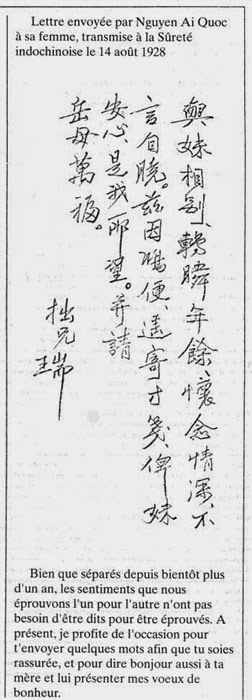 Lettre envoyée par Nguyen Ai Quoc
à sa femme, transmise à la Sûreté
indochinoise le 14 août 1928
與妹相別,轉瞬年餘,懷念情深,不
言自曉。茲因鴻便,遙寄寸箋,俾妹
安心,是我所望。并請
岳母萬福。
拙兄瑞
Bien que séparés depuis bientôt plus
d'un an, les sentiments que nous
éprouvons l'un pour l'autre n'ont pas
besoin d'être dits pour être éprouvés. A
présent, je profite de l'occasion pour
t'envoyer quelques mots afin que tu soies
rassurée, et pour dire bonjour aussi à ta
mère et lui présenter mes voeux de
bonheur.